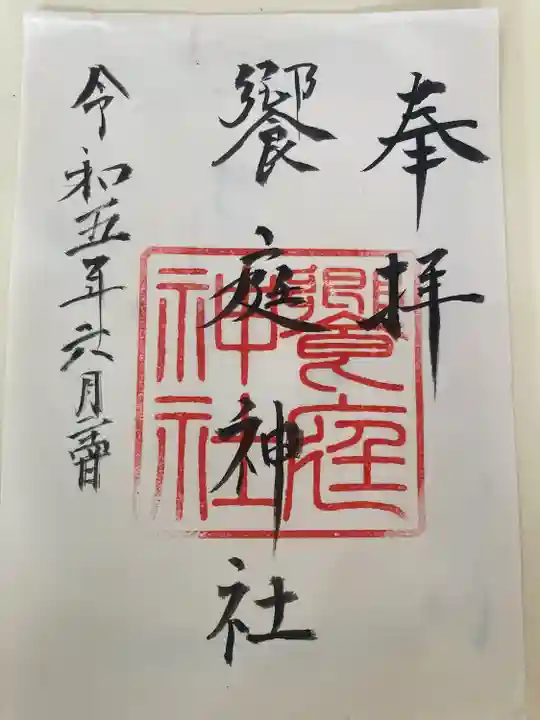 奉拝
饗庭神社
饗庭
神社
令和五年六月二十四日